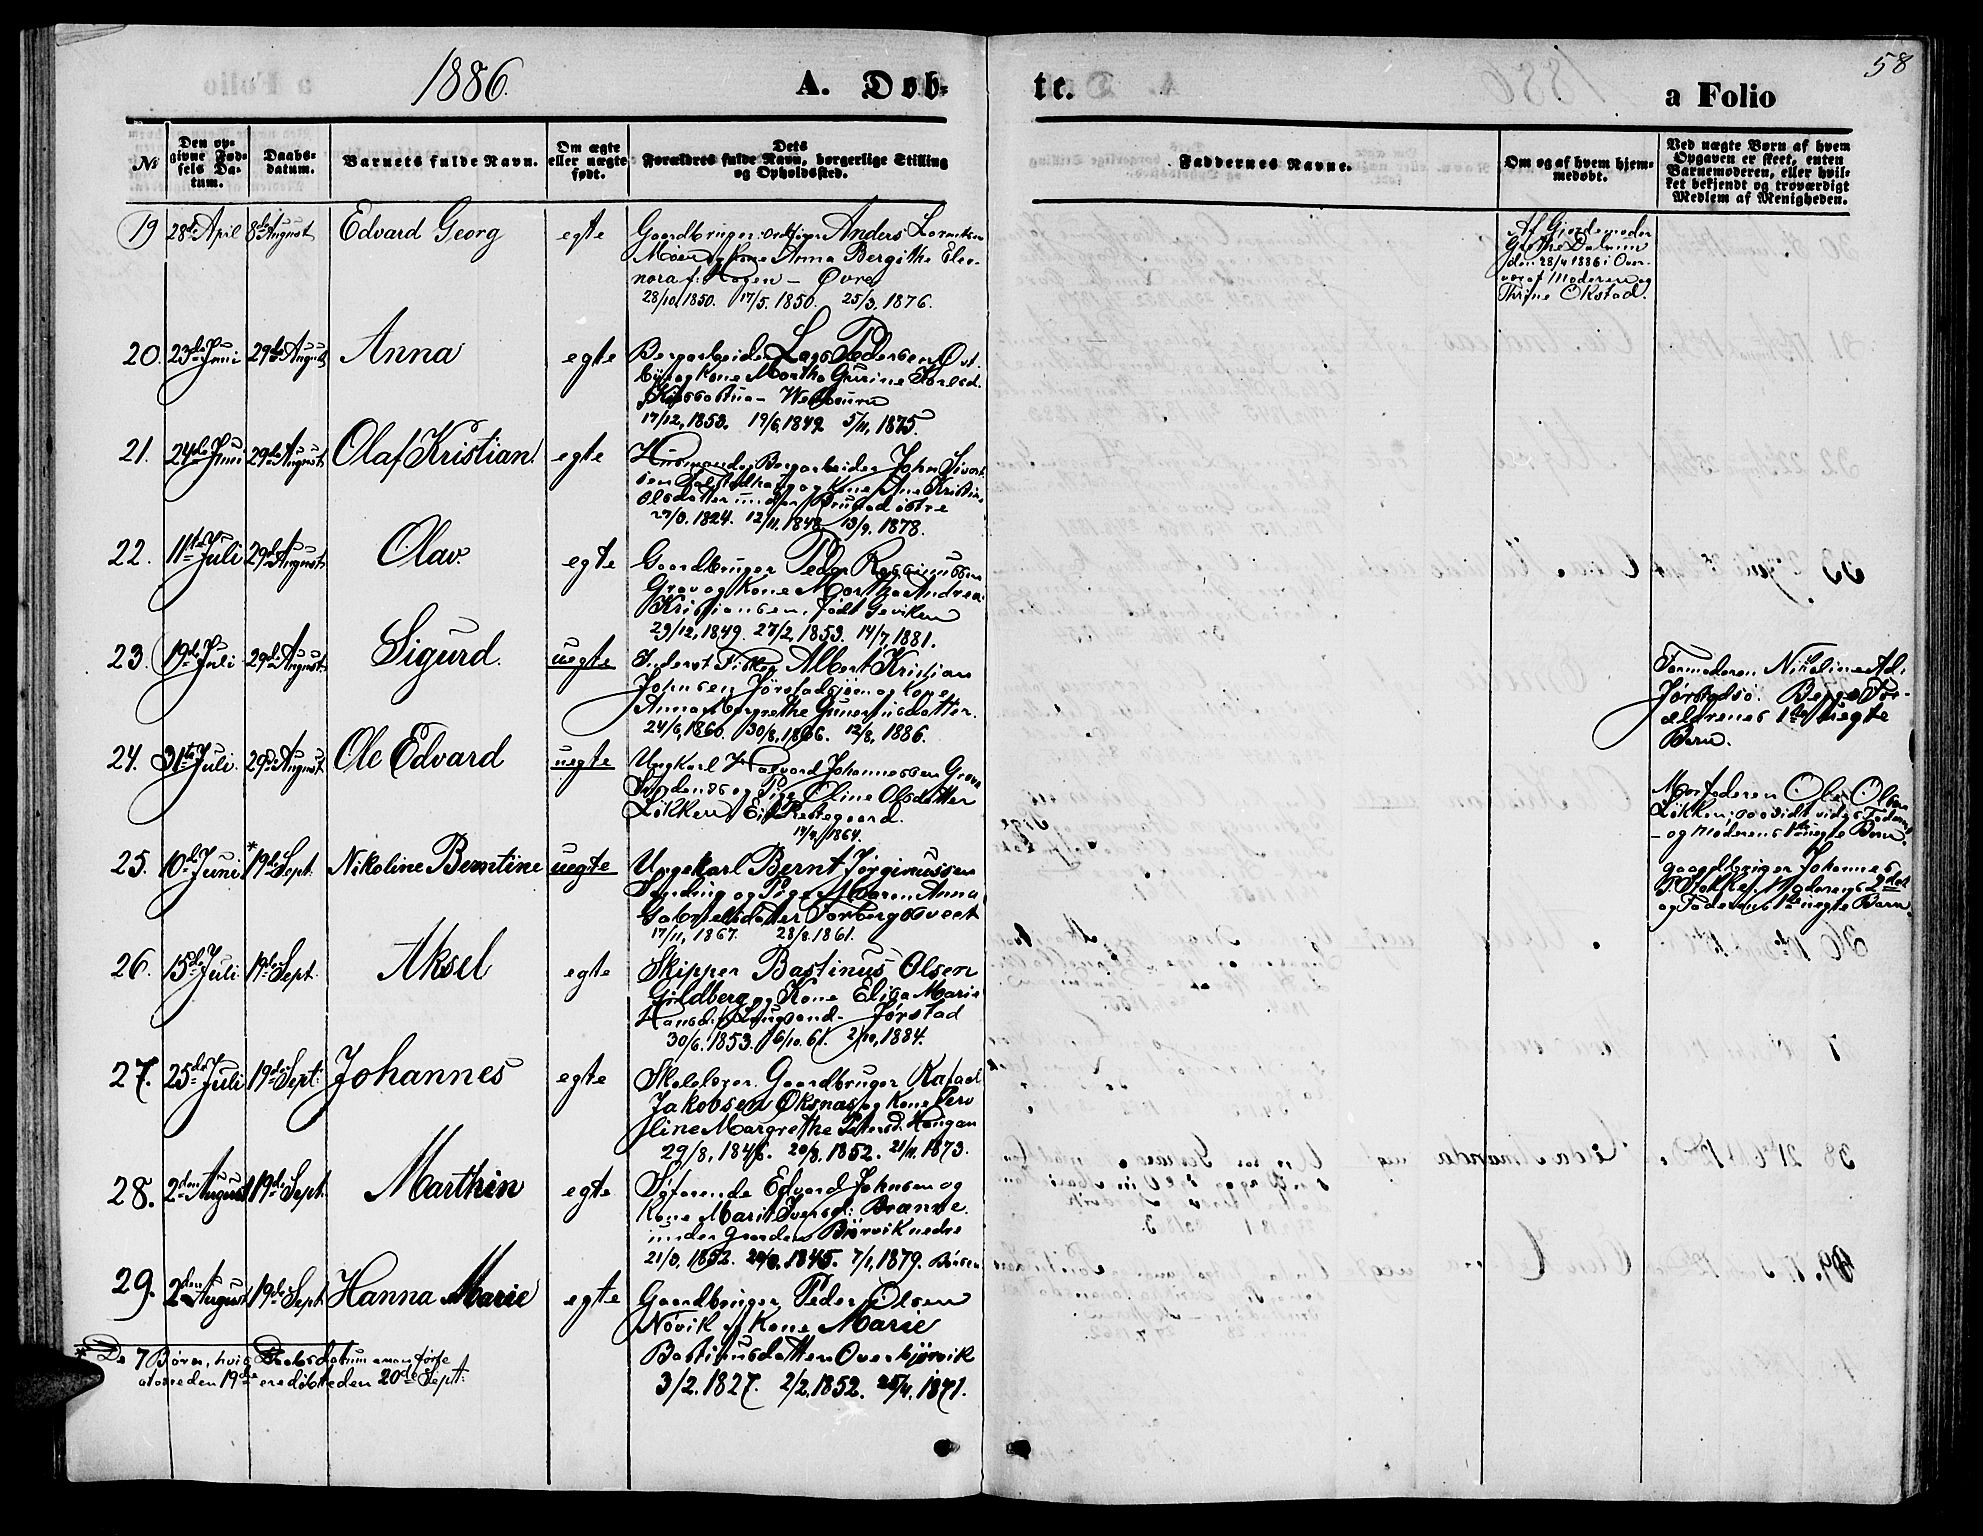 1886.
A. Døb-
te.
a Folio
58
No
Den op-
givne Fød-
sels Da-
tum.
Daabs-
datum.
Barnets fulde Navn.
Om ægte
eller uægte
født.
Dets
Forældres fulde Navn, borgerlige Stilling
og Opholdssted.
Faddernes Navne.
Om og af hvem hjem-
medøbt.
Ved uægte Børn af hvem
Opgaven er skeet, enten
Barnemoderen, eller hvil-
ket bekjendt og troværdigt
Medlem af Menigheden.
19 28de April 8de August Edvard Georg egte Gaardbruger Anders
og Kone Anna Bergithe Eleo-
nora f: Hagen – Øvre
28/10, 1850. 17/5. 1850. 25/3. 1876.
Af Gjordemoder
Grethe Dalum
den 28/4 1886 i Over-
vær af Moderen og
Thrine Okstad.
20. 23de Juni 29de August Anna egte Bergarbeider Lars Pedersen Øst-
og Kone Martha Gurine
17/12, 1853. 19/6. 1849. 5/11, 1875.
21. 24de Juni 29de August Olaf Kristian egte Husmand og Bergarbeider John Sivert-
sen og Kone Ane Kristine
Olsdatter under
1824. 12/11. 1848. 13/9, 1878.
22. 11te Juli 29de August Olav. egte Gaardbruger Peder Rasmussen
Grav og Kone Martha Andrea
Kristiansen, født Geviken
29/12, 1849. 27/2, 1853. 14/7, 1881.
23. 19de Juli 29de August Sigurd. uegte Inderst Fisker Albert Kristian
Johnsen Jørstadsjøen og
Anna Margrethe Guneriusdatter.
24/6, 1860. 30/8, 1866. 12/8, 1886.
Farmoderen Nikoline
Jørstadsø. Begge For-
ældrenes 1ste uegte
Barn.
24. 31te Juli. 29de August Ole Edvard uegte Ungkarl Halvard Johannessen
og Pige Oline Olsdatter
Løkken Eie Prestegaard.
17/9, 1864.
Morfaderen Ole Olsen
Løkken; saavidt vides Faderens
– og Moderens 1ste uegte Barn.
25. 10de Juni *19de Sept. Nikoline Berntine uegte Ungekarl Bernt Jørginussen
og Pige Maren Anna
Gabrielsdatter
17/11, 1867. 28/8. 1861.
gaardbruger Johannes
P. Stokke. Moderens 2det
og Faderens 1ste uegte Barn.
26. 15de Juli 19de Sept. Aksel egte Skipper Bastinus Olsen
Gildberg og Kone Elisa Marie
Hansd: Langsand – Jørstad
30/6. 1853. 16/10. 61. 2/10, 1884.
27. 25de Juli 19de Sept: Johannes egte Skolelærer Gaardbruger
Jakobsen Øksnas og Kone
Margrethe Petersd: Haugan
29/8, 1846. 1852. 21/11. 1873.
28. 2den August 19de Sept. Marthin egte Søfarende Edvard Johnsen og
Kone Marit Iversd: Brænne
under Gaarden Bjørvik nedre
1852. 1845. 7/1, 1879.
29. 2den August 19de Sept Hanna Marie egte Gaardbruger Peder Olsen
Nøvik og Kone Marie
Bastinusdatter Overbjørvik
3/2. 1827. 2/2, 1852. 25/4, 1871.
* De 7 Børn, hvis Daabsdatum er anført
den 19de ere døbte den 20de Sept: